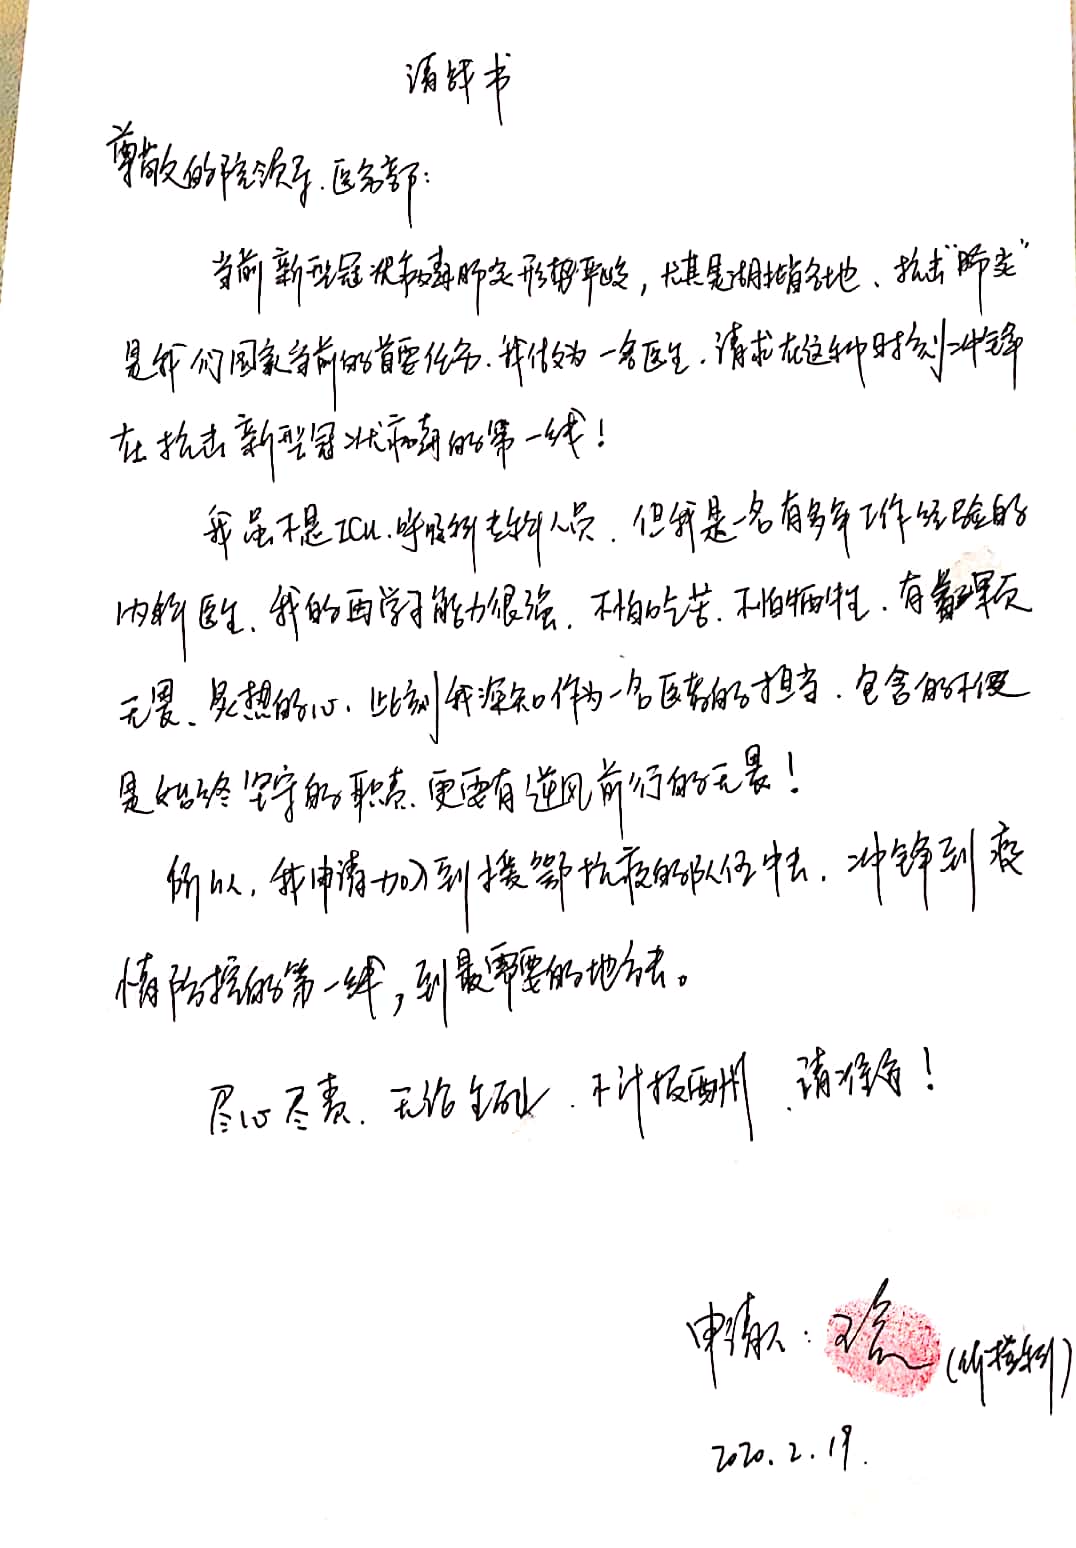 请战书
尊敬的院领导、医务部:
当前新型冠状病毒肺炎形势严峻,尤其是湖北省各地、抗击"肺炎"
是我们国家当前的首要任务、我做为一名医生、请求在这种时刻冲锋
在抗击新型冠状病毒的第一线!
我虽不是ICU、呼吸科专科人员、但我是一名有多年工作经验的
内科医生、我的再学习能力很强、不怕吃苦、不怕牺牲、有
无畏、的心、此刻我深知作为一名医者的担当、包含的不仅
是始终坚守的职责、更要有逆风前行的无畏!
所以、我申请加入到援鄂抗疫的队伍中去、冲锋到疫
情防控的第一线,到最需要的地方去。
尽心尽责、无论生死、不计报酬、请准字!
申请人:王 (科)
2020.2.19.